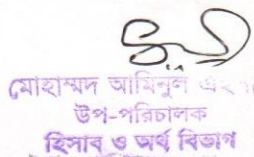 মোহাম্মদ আমিনুল
উপ-পরিচালক
হিসাব ও অর্থ বিভাগ